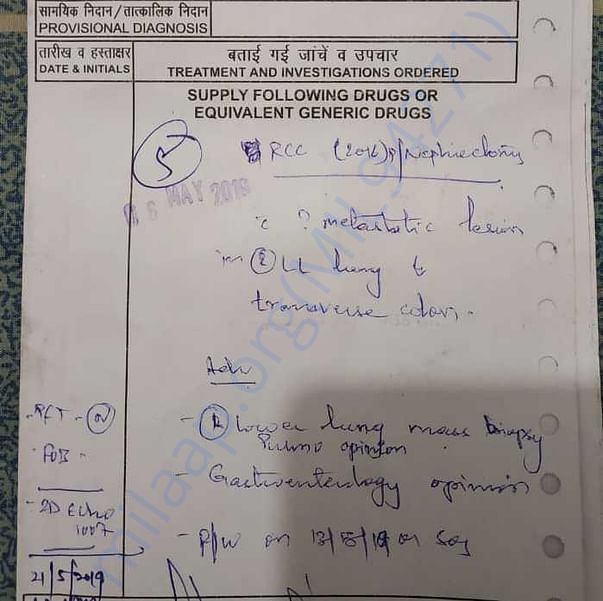 सामयिक निदान/तात्कालिक निदान
PROVISIONAL DIAGNOSIS
तारीख व हस्ताक्षर
DATE & INITIALS
बताई गई जांचें व उपचार
TREATMENT AND INVESTIGATIONS ORDERED
SUPPLY FOLLOWING DRUGS OR
EQUIVALENT GENERIC DRUGS
5
RCC (2016) P/Nephrectomy
6 MAY 2019
c ? metastatic lesion
in LL lung &
transverse colon.
Adv
- lower lung mass biopsy
Pulmo opinion
- Gastroenterology opinion
- on 13/5/19 on
- PFT - N
- FOB -
- 2D Echo
21/5/2019
milaap.org(MIL94271)